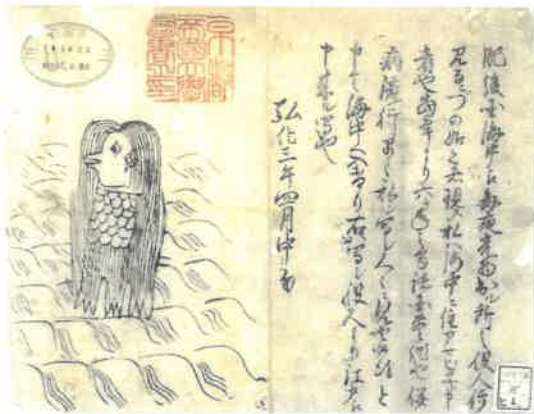 肥後国海中え毎夜光物出ル所之役人行
見るニづの如之者現ス私ハ海中ニ住アマビヱト申
者也当年より六ヶ年之間諸国豊作也併
病流行早々私シ写シ人々ニ見せ候得と
申て海中へ入けり右ハ写シ役人より江戸え
申来ル写也
弘化三年四月中旬
京都
帝国大学
図書之印